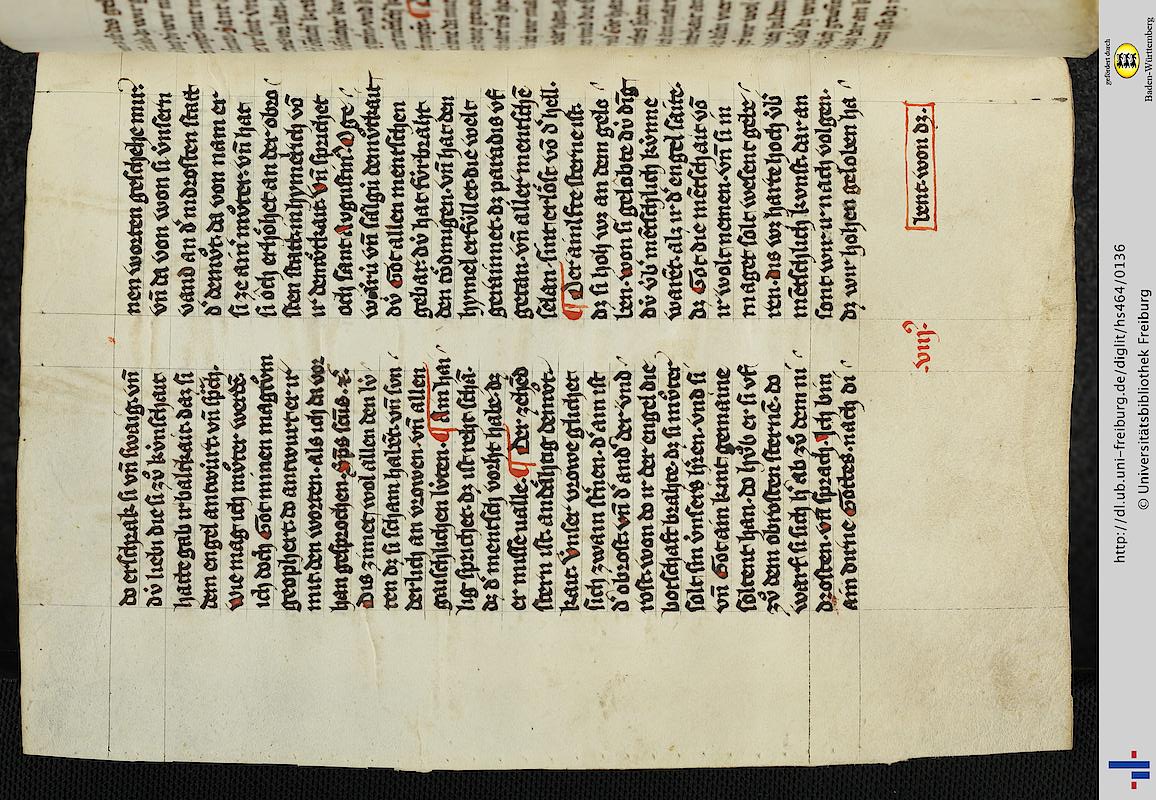 do erschrak si vn̄ swaig vn̄
dv́ lieb die si zv̊ kv́nschait
hatte gab ir balkait daz si
dem engel antwúrt vn̄ sp̄ch.
wie mag ich mv̊ter werdē.
ich doch Got minen magtvm
geopphert do antwurt er ir
mit den worten. als ich da vor
han gesprochen.
Dis zimet wol allen den lv́
ten dz si scham habēt vn̄ sun
derlich an vrowen vn̄ allen
gaischlichen lúten. ¶ Am hai
lig sprichet dz ist reht schā.
dz d' mensch vorht habe dz
er misseualle. ¶ Der zehēd
stern ist andähtig demv̊t
kait. Vnser vrowe glichet
sich zwain st'nen. d' ain ist
d' obrost vn̄ d' and' der vnd
rost. won do ir der engel die
botschaft brahte dz si mv̊ter
solt sin vnsers h'ren vnd si
vn̄ Got ain kint gemaine
soltent han. do hv̊b er si vf
zv̊ dem obrosten sternē do
warf si sich h' ab zv̊ dem ni
drosten. vn̄ sprach. Ich bin
ain dirne Gottes. nach di
nen worten geschehe mir
vn̄ da von won si v́nsern
vand an d' nidrosten statt
d' demv̊t. da von nam er
si ze ain' mv̊ter. vn̄ hat
si och erhöhet an der obro
sten statt in hymelrich vō
ir demv̊tkait vn̄ sprichet
och sant Avgustin.
warú vn̄ sälgú demv̊tkait
dv́ Got allen menschen
gebar dv́ hat fúrbraht
den tödmigen. vn̄ hat den
hymel erfúllet. die welt
gerainnet. dz paradis vf
getan. vn̄ aller mentschē
selan sint erlöst vō d' hell.
¶ Der ainlfte sterne ist.
dz si hoh wz an dem gelo
ben. won si gelobte dv́ dīg
dv́ vb' mēschlich kv́nne
warēt. alz ir d' engel saite.
dz Got die mēschait vō
ir wolt nemen. vn̄ si in
maget solt wesent gebe
ren. dis wz harte hoch vb'
mēschlich kvnst. dar an
sont wir ir nach volgen.
dz wir hohen geloben ha
.viij.
bent. won dz.
gefördert durch
Baden-Württemberg
http://dl.ub.uni-freiburg.de/diglit/hs464/0136
© Universitätsbibliothek Freiburg